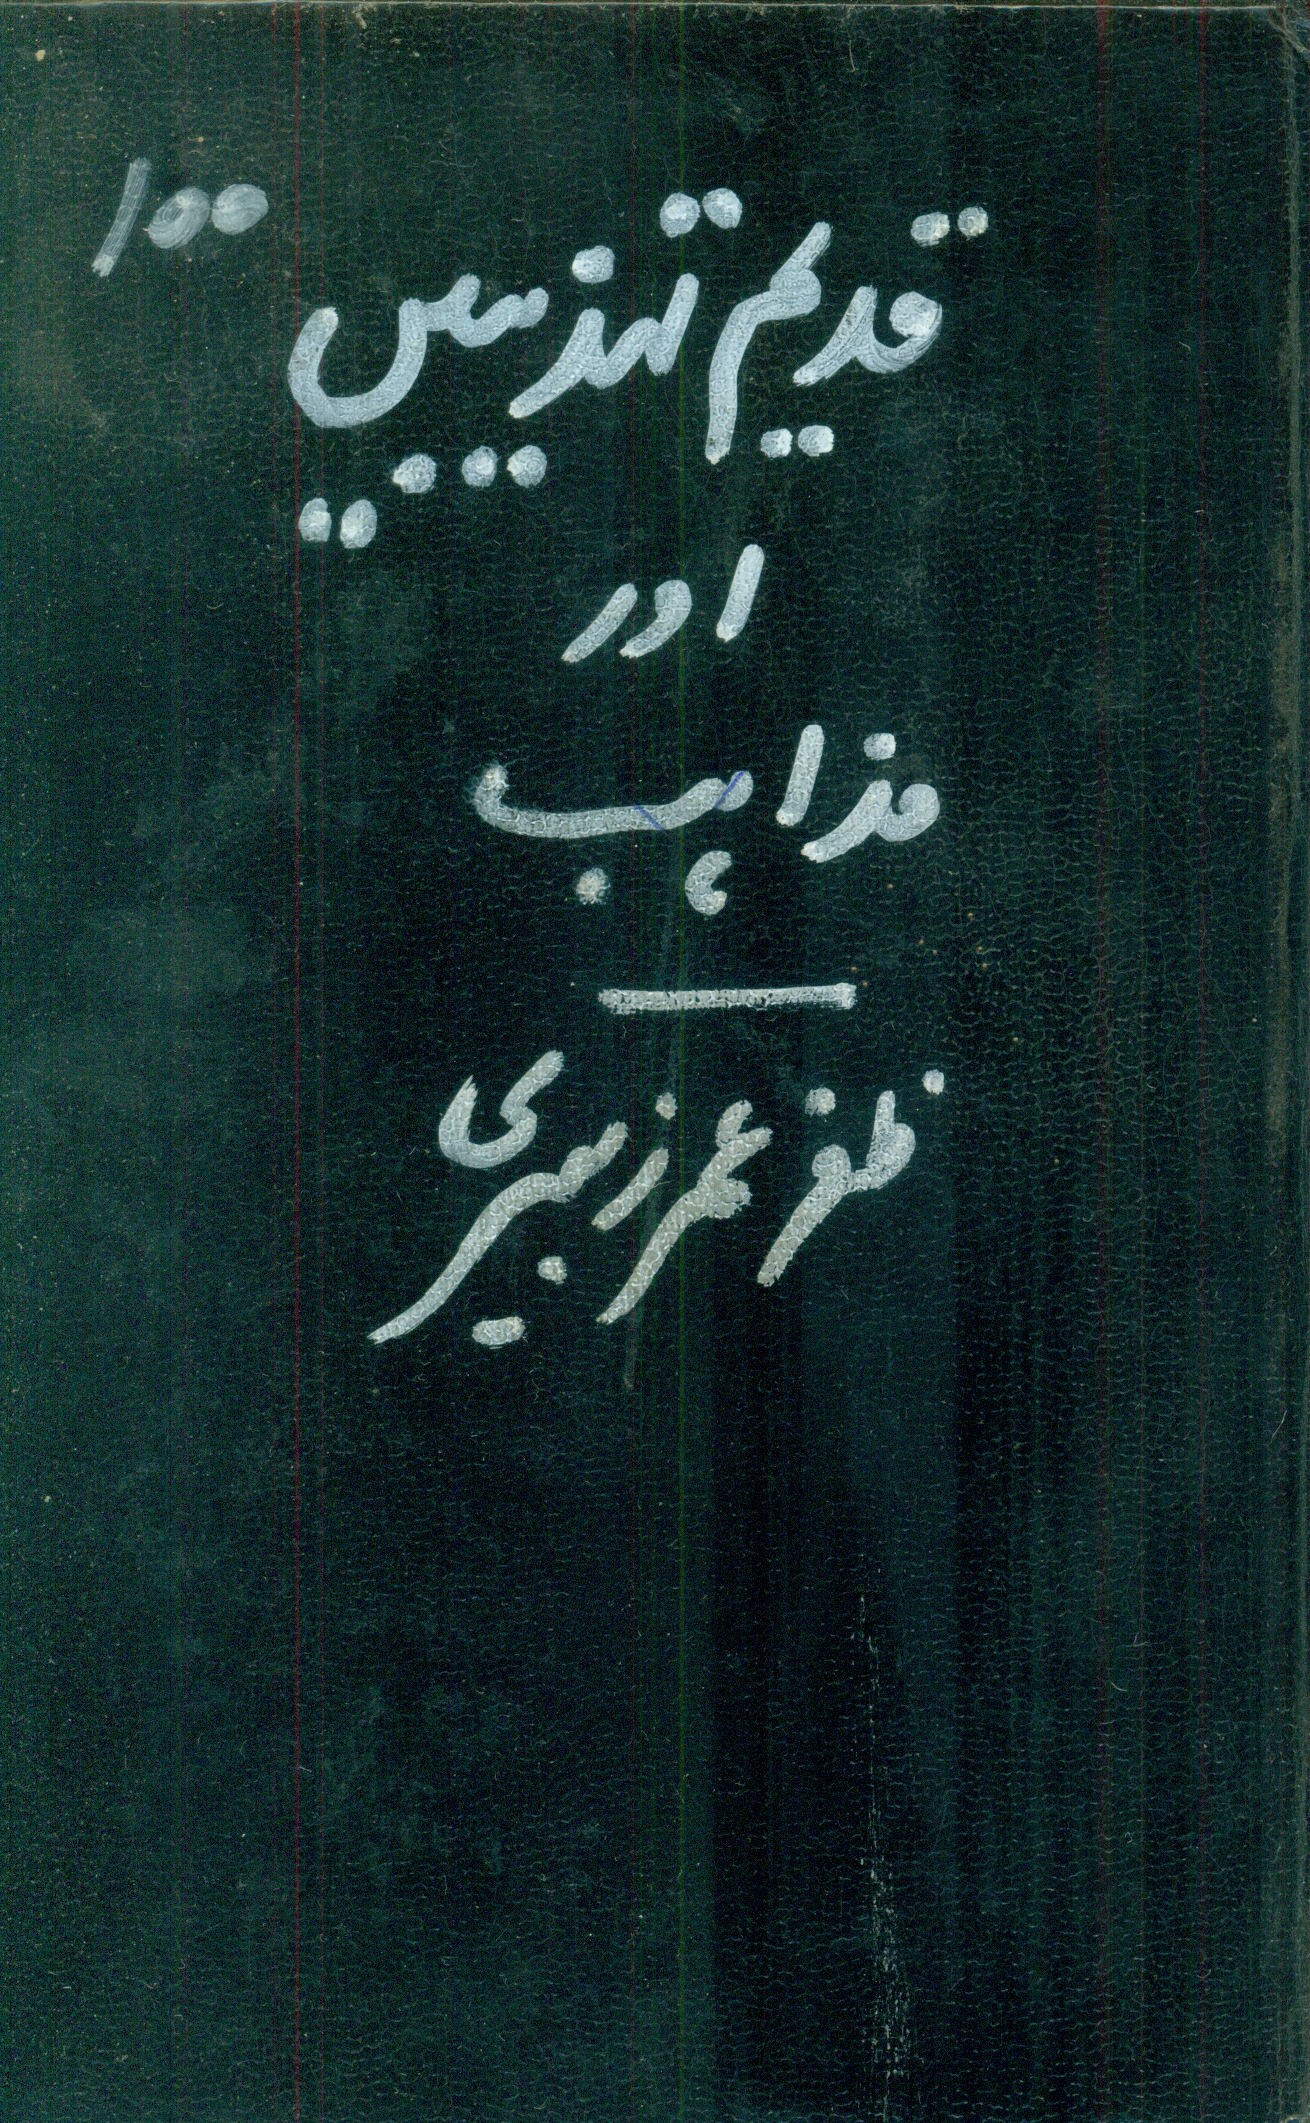 ۱۰۰
قدیم تہذیبیں
اور
مذاہب
ظفر عمر زبیری